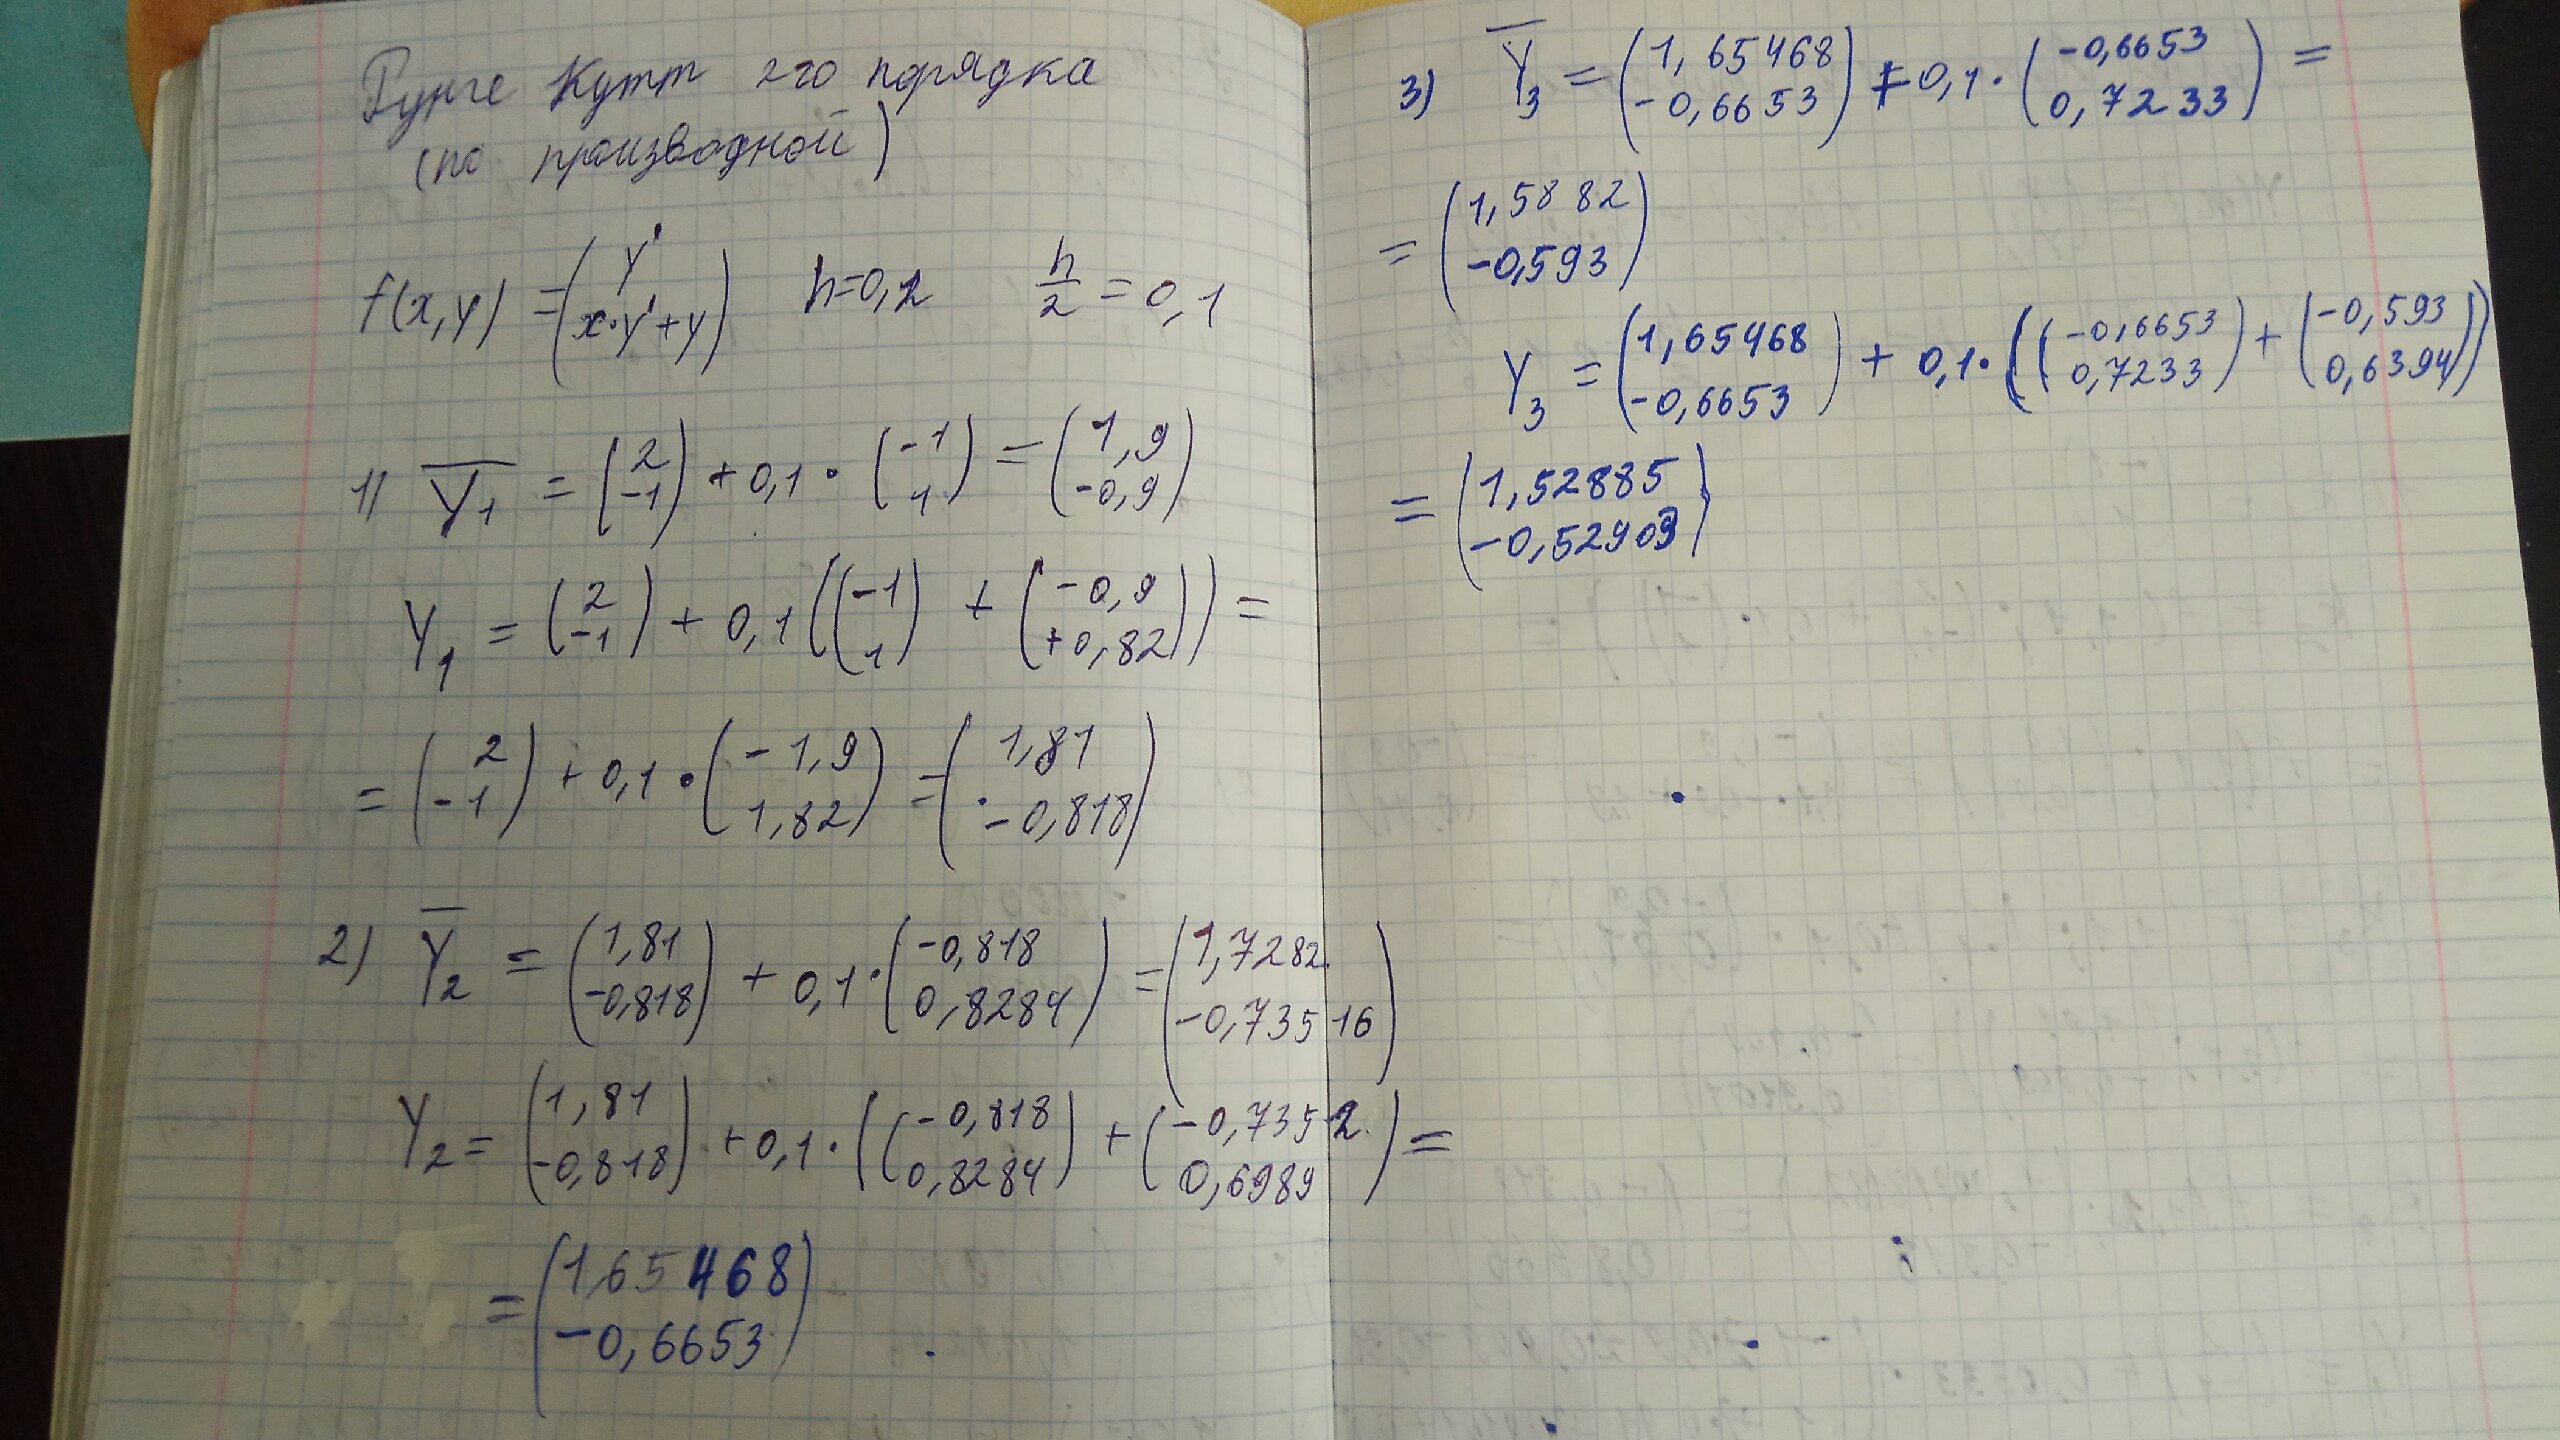 Рунге Кутт 2го порядка
(по производной)
f(x,y) = (y' ; x·y'+y) h=0,2 h/2 = 0,1
1) Y̅₁ = (2 ; -1) + 0,1 · (-1 ; 1) = (1,9 ; -0,9)
Y₁ = (2 ; -1) + 0,1((-1 ; 1) + (-0,9 ; +0,82)) =
= (2 ; -1) + 0,1 · (-1,9 ; 1,82) = (1,81 ; -0,818)
2) Y̅₂ = (1,81 ; -0,818) + 0,1·(-0,818 ; 0,8284) = (1,7282 ; -0,73516)
Y₂ = (1,81 ; -0,818) + 0,1·((-0,818 ; 0,8284) + (-0,7352 ; 0,6989) =
= (1,65468 ; -0,6653)
3) Y̅₃ = (1,65468 ; -0,6653) + 0,1·(-0,6653 ; 0,7233) =
= (1,5882 ; -0,593)
Y₃ = (1,65468 ; -0,6653) + 0,1·((-0,6653 ; 0,7233) + (-0,593 ; 0,6394))
= (1,52885 ; -0,52903)